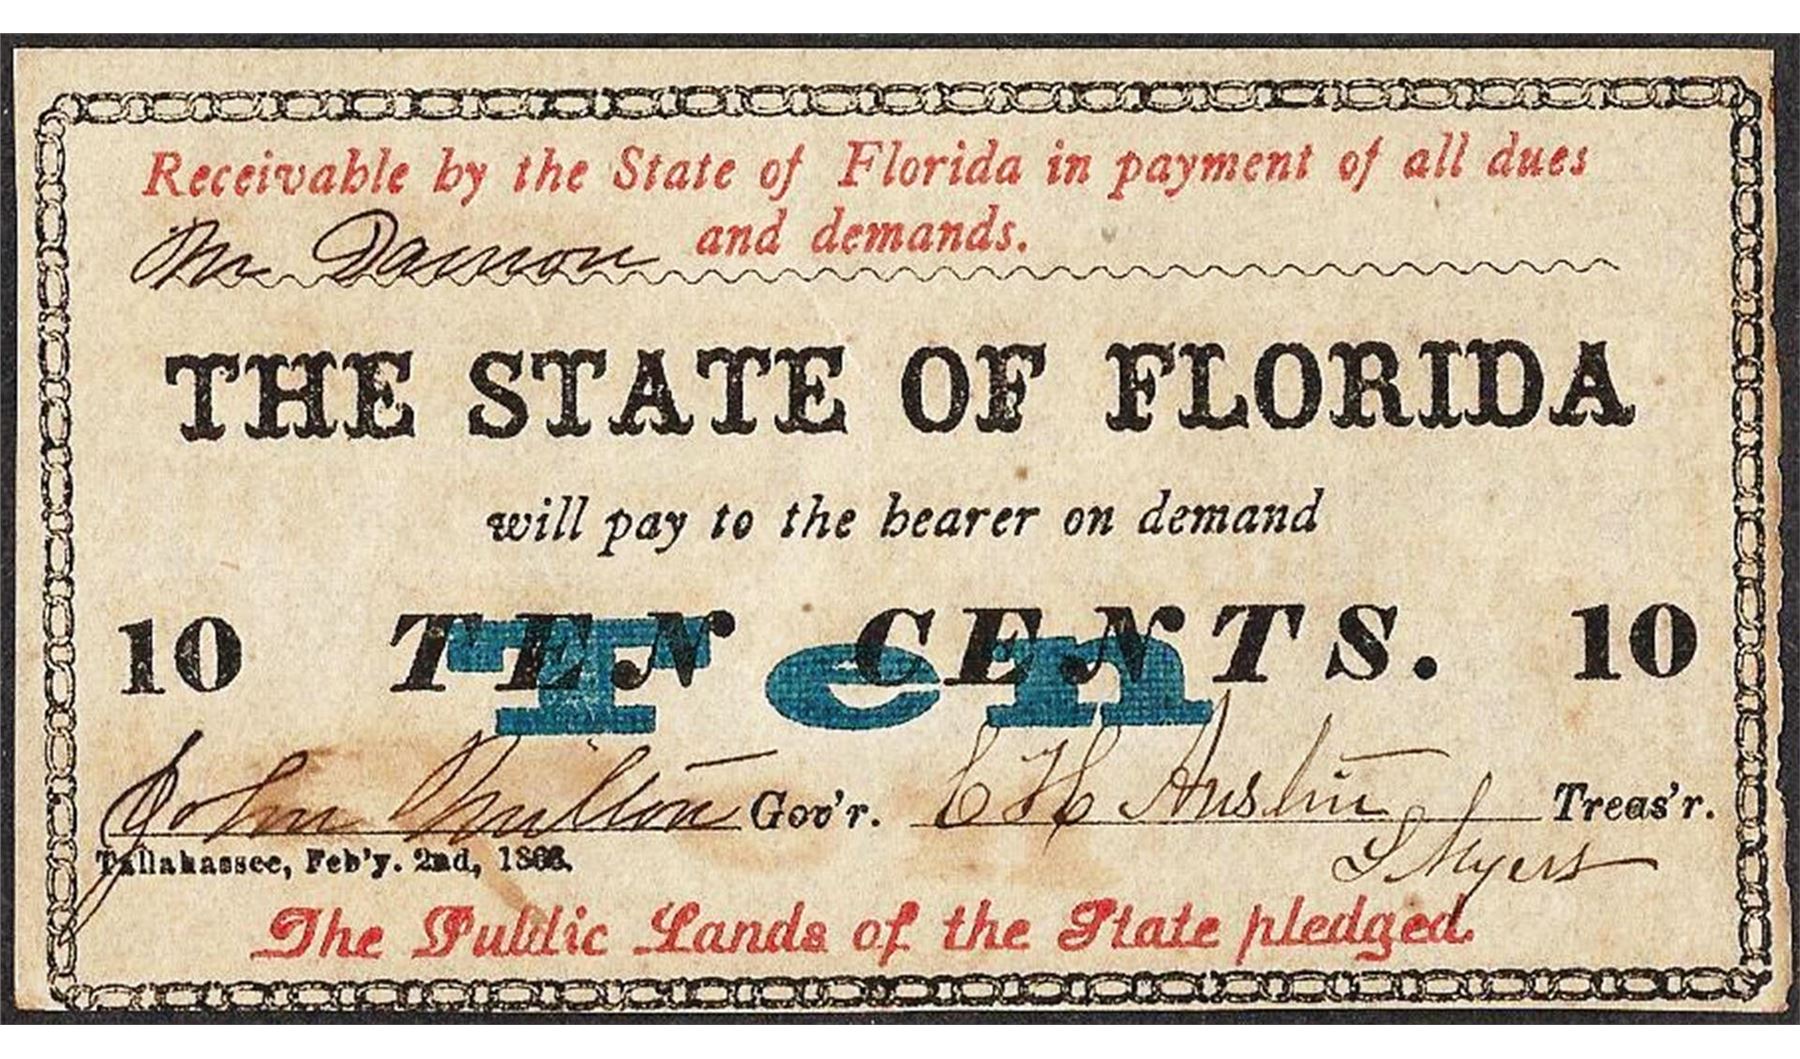 Receivable by the State of Florida in payment of all dues
and demands.
M Damon
THE STATE OF FLORIDA
will pay to the bearer on demand
10 TEN CENTS. 10
Ten
John Milton Gov'r. C H Austin Treas'r.
Tallahassee, Feb'y. 2nd, 1863.
S Myers
The Public Lands of the State pledged.